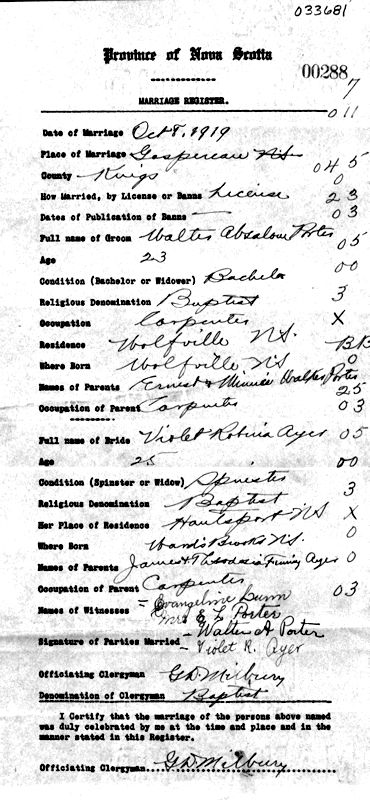 033681
Province of Nova Scotia
00288
7
MARRIAGE REGISTER.
011
Date of Marriage Oct 8, 1919
Place of Marriage Gaspereau N.S. 045
County Kings 0
How Married, by License or Banns License 23
Dates of Publication of Banns — 03
Full name of Groom Walter Absalom Porter 05
Age 23 00
Condition (Bachelor or Widower) Bachelor
Religious Denomination Baptist 3
Occupation Carpenter X
Residence Wolfville N.S. BB
Where Born Wolfville N.S. 0
Names of Parents Ernest & Minnie Walker Porter 25
Occupation of Parent Carpenter 03
Full name of Bride Violet Robina Ayer 05
Age 25 00
Condition (Spinster or Widow) Spinster
Religious Denomination Baptist 3
Her Place of Residence Hantsport N.S. X
Where Born Brook N.S. 0
Names of Parents James & Ayer 0
Occupation of Parent Carpenter
Names of Witnesses = Evangeline Dunn 03
Mrs E. L. Porter
Signature of Parties Married - Walter A Porter
- Violet R. Ayer
Officiating Clergyman G.D. Milbury
Denomination of Clergyman Baptist
I Certify that the marriage of the persons above named
was duly celebrated by me at the time and place and in the
manner stated in this Register.
Officiating Clergyman G.D. Milbury